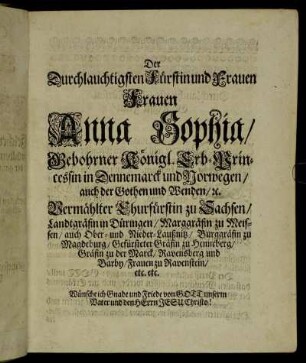 Der
Durchlauchtigsten Fürstin und Frauen
Frauen
Anna Sophia/
Gebohrner Königl. Erb-Prin-
cessin in Dennemarck und Norwegen/
auch der Gothen und Wenden/ ꝛc.
Vermählter Churfürstin zu Sachsen/
Landtgräfin in Düringen/ Marggräfin zu Meis-
sen/ auch Ober- und Nieder-Laußnitz/ Burggräfin zu
Magdeburg/ Gefürsteter Gräfin zu Henneberg/
Gräfin zu der Marck/ Ravensberg und
Barby/ Frauen zu Ravenstein/
etc. etc.
Wünsche ich Gnade und Friede von GOTT unserm
Vater und dem HErrn JESU Christo!